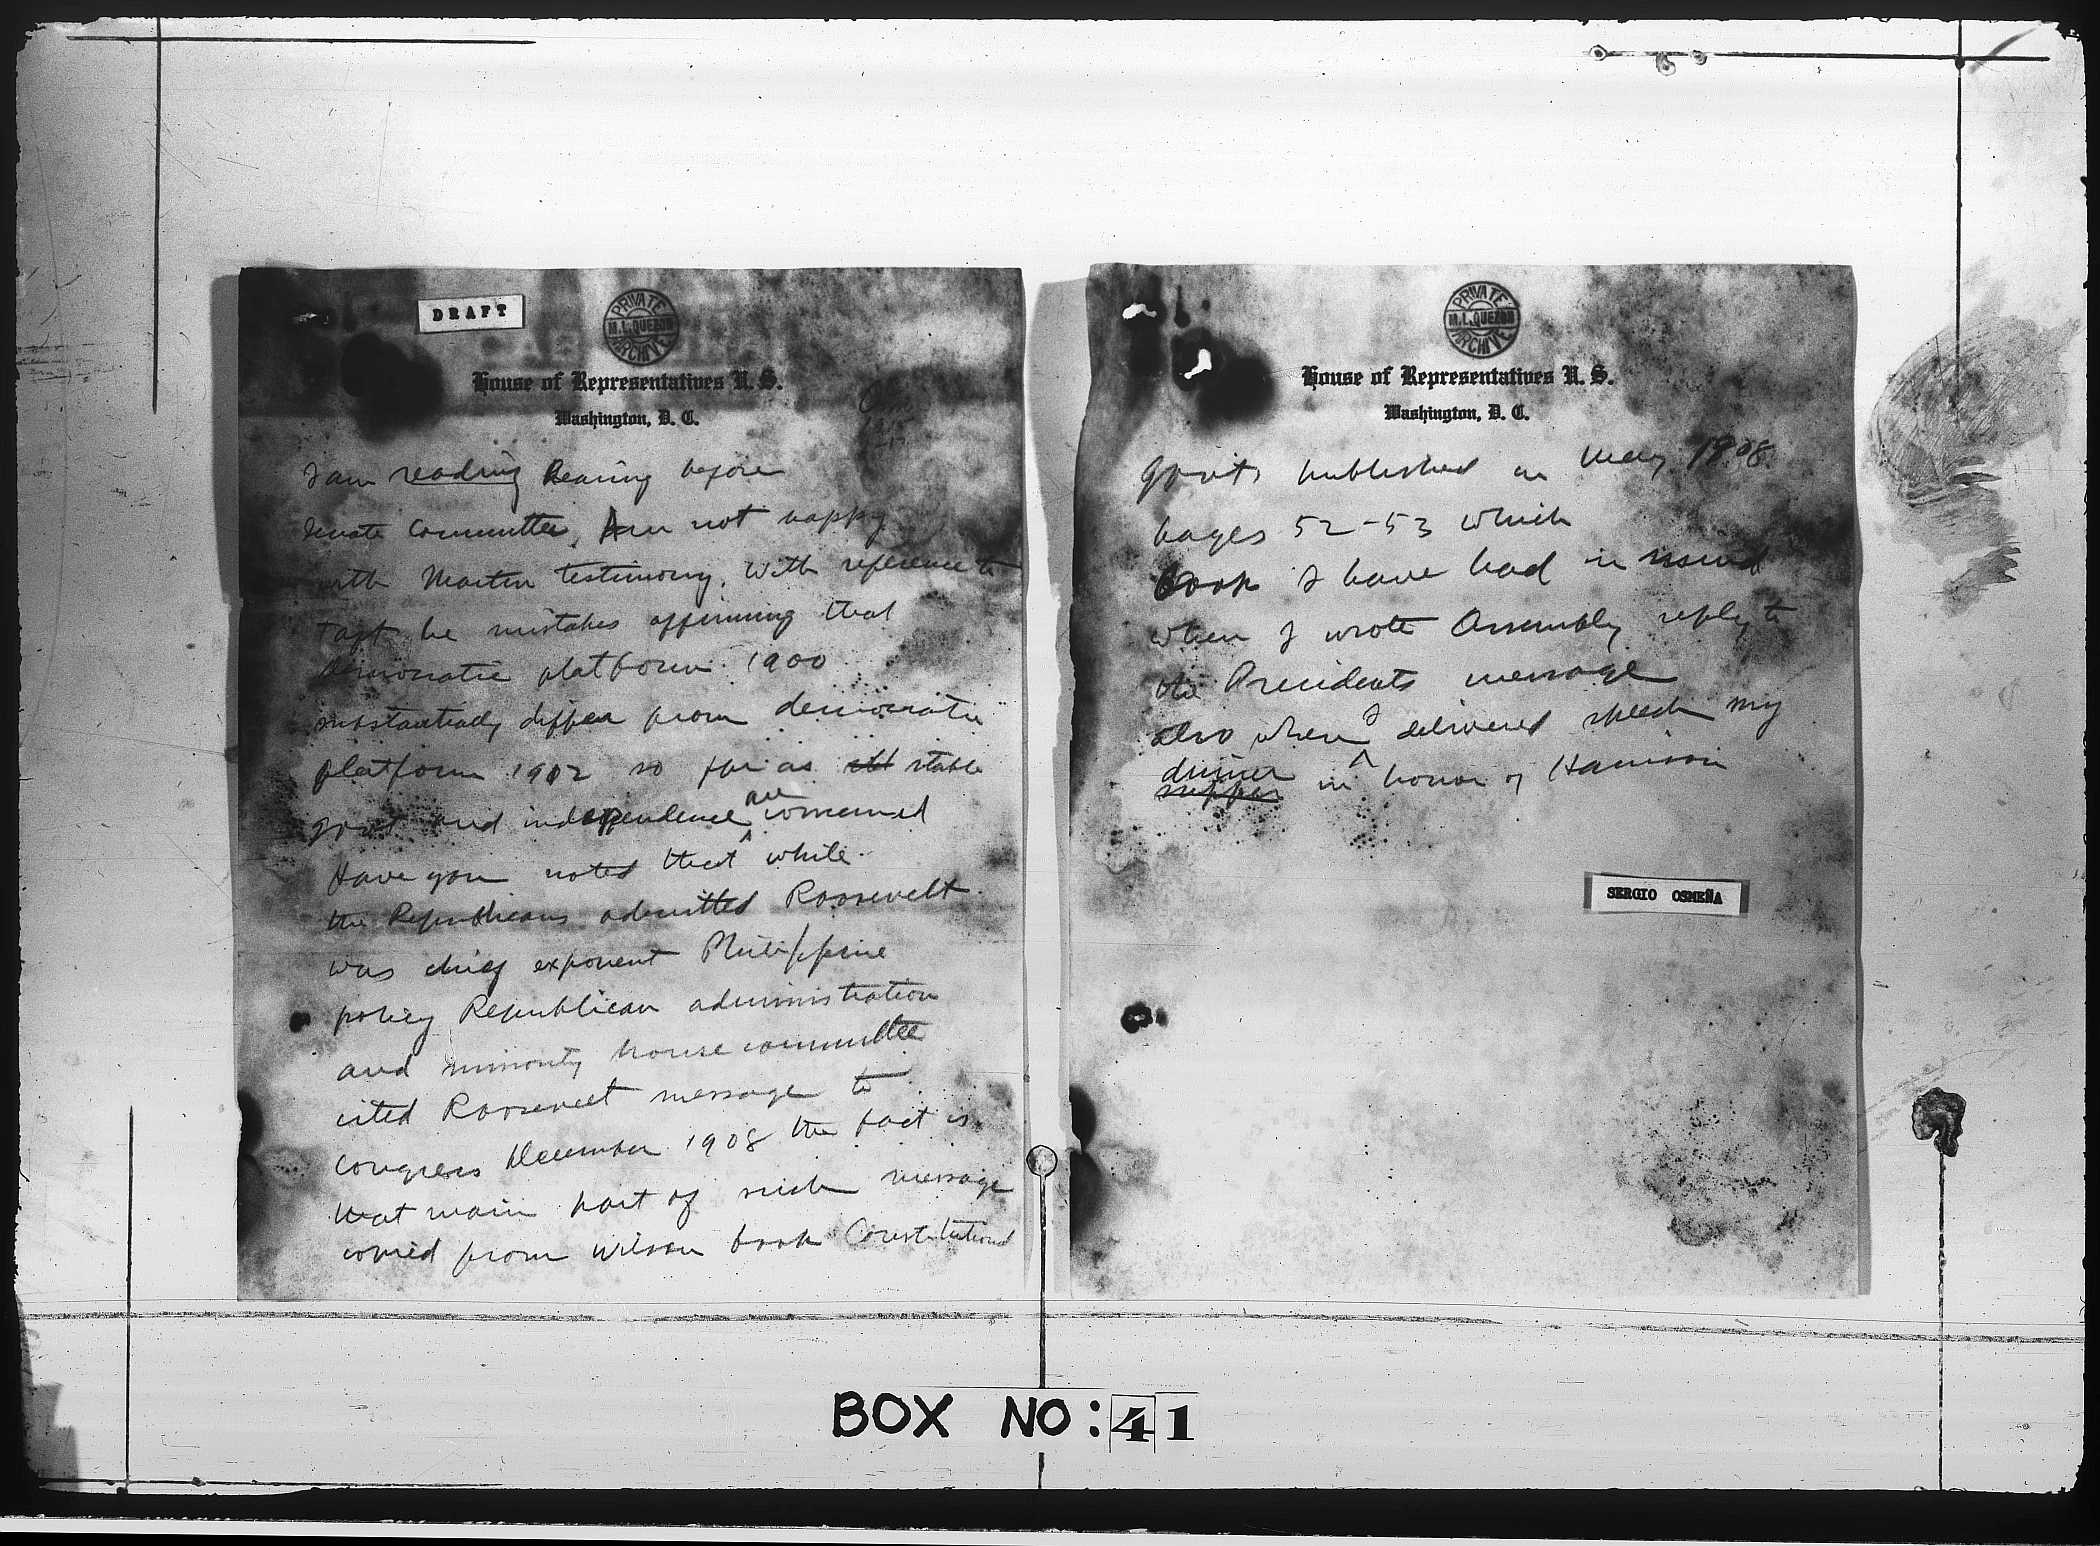 DRAFT
PRIVATE
M.L. QUEZON
ARCHIVE
House of Representatives U. S.
Washington, D. C.
I am reading hearing before
Senate Committee, Am not happy
with Martin testimony. With reference to
Taft he mistakes affirming that
democratic platform 1900
substantially differ from democratic
platform 1912 so far as stable
govt and independence are concerned
Have you noted that while
the Republicans admitted Roosevelt
was chief exponent Philippine
policy Republican administration
and minority house committee
cited Roosevelt message to
Congress December 1908 the fact is
that main part of such message
copied from Wilson book Constitutional
PRIVATE
M.L. QUEZON
ARCHIVE
House of Representatives U. S.
Washington, D. C.
Govt, published in May 1908
pages 52-53 which
book I have had in mind
when I wrote Assembly reply to
the Presidents message
also when I delivered speech my
dinner
supper in honor of Harrison
SERGIO OSMEÑA
BOX NO: 41